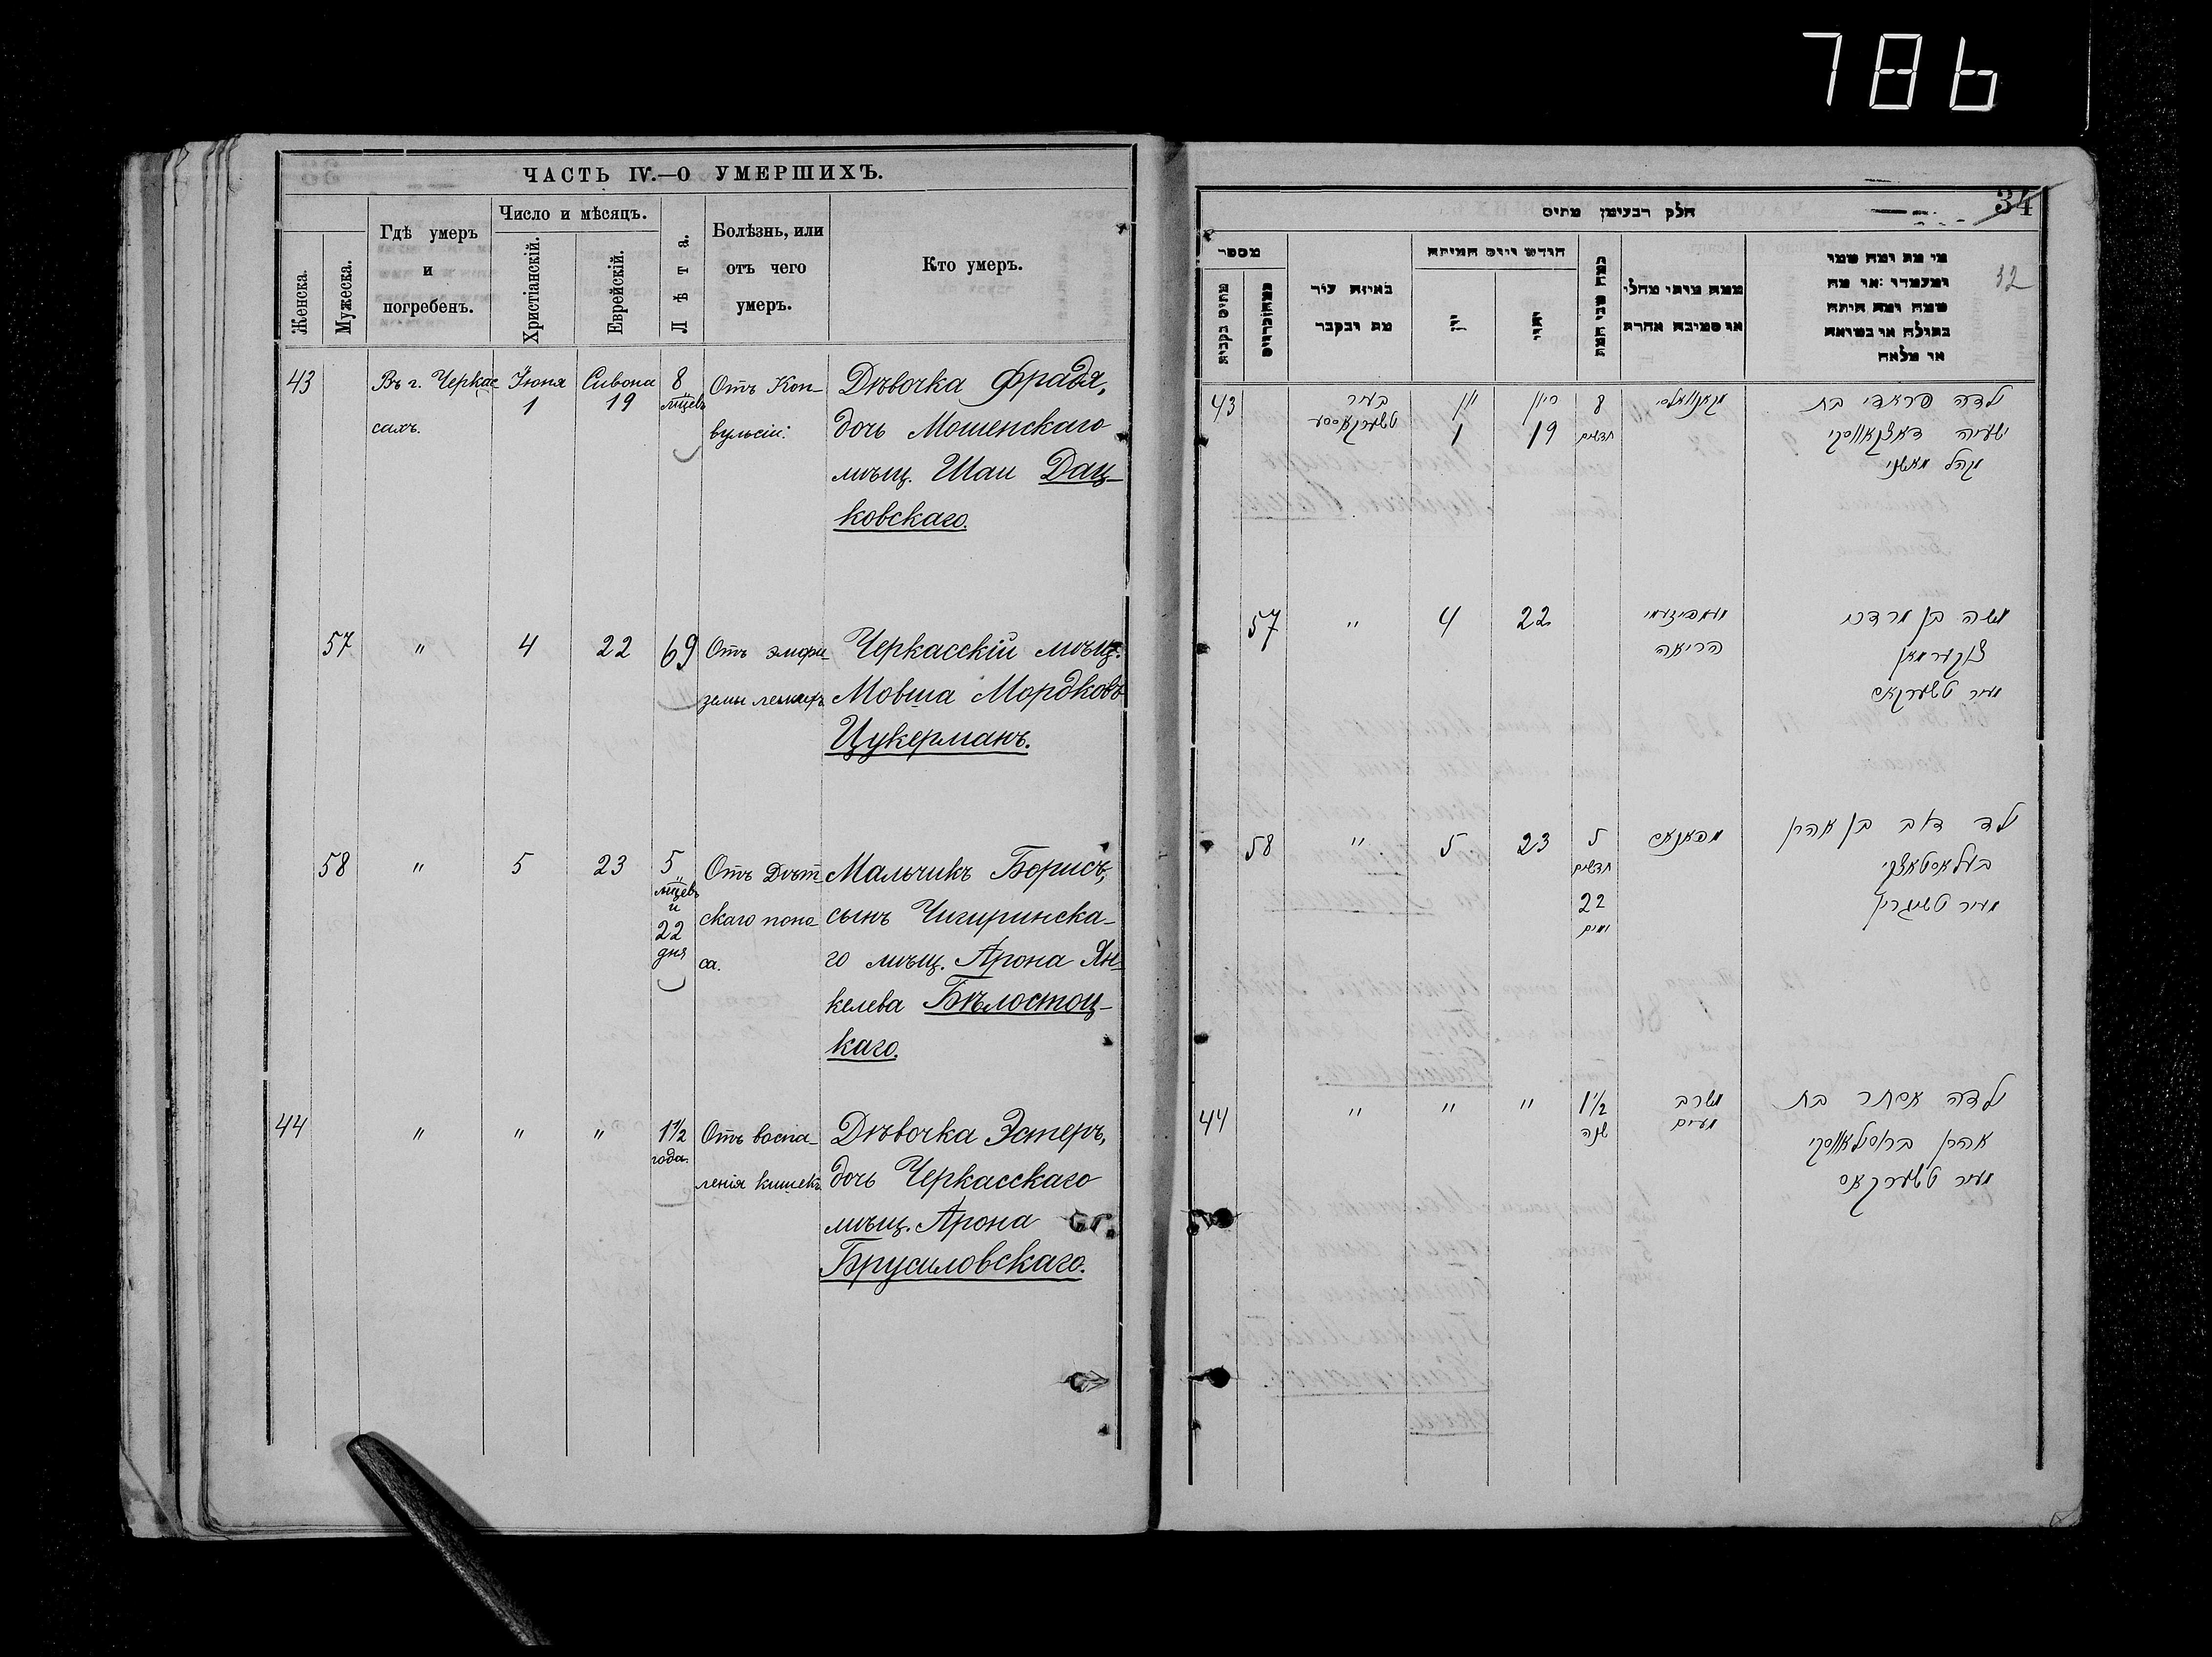 786
ЧАСТЬ IV.—О УМЕРШИХЪ.
Женска.
Мужеска.
Гдѣ умеръ
и
погребенъ.
Число и мѣсяцъ.
Христіанскій.
Еврейскій.
Лѣта.
Болѣзнь, или
отъ чего
умеръ.
Кто умеръ.
43
Въ г. Черкас
сахъ.
Іюня
1
Сивона
19
8
мѣцевъ
Отъ Кон-
вульсіи.
Дѣвочка Фрадя,
дочь Мошенскаго
мѣщ. Шаи Дац-
ковскаго.
57
"
4
22
69
Отъ эмфи-
земы легкихъ
Черкасскій мѣщ.
Мовша Мордковъ
Цукерманъ.
58
"
5
23
5
мѣцевъ
и
22
дня
Отъ Дѣт-
скаго поно
са.
Мальчикъ Борисъ,
сынъ Чигиринска-
го мѣщ. Арона Ян-
келева Бѣлостоц-
каго.
44
"
"
"
1 1/2
года.
Отъ воспа-
ленія кишекъ
Дѣвочка Эстеръ,
дочь Черкасскаго
мѣщ. Арона
Брусиловскаго.
34
32
חלק רביעי מן מתים
מספר
חודש ויום המיתה
באיזה עיר
מת ונקבר
כמה שני המת
ממה מותו מחלי
או סמיבה אחרת
מי מת ומה שמו
ומעמדו או מה
שמה ומה היתה
בתולה או נשואה
או מלאה
43
בעיר
טשערקאססע
יון
1
סיון
19
8
חדשים
ילדה פראדי בת
ישעיה דאצקאווסקי
מקהל מאשני
57
"
4
22
הריאה
משה בן מרדכי
צוקערמאן
מעיר טשערקאס
58
"
5
23
5
חדשים
22
ימים
ילד דוב בן אהרן
בעלאסטאצקי
מעיר טשיגרין
44
"
"
"
1 1/2
שנה
מעים
ילדה אסתר בת
אהרן ברוסילאווסקי
מעיר טשערקאס